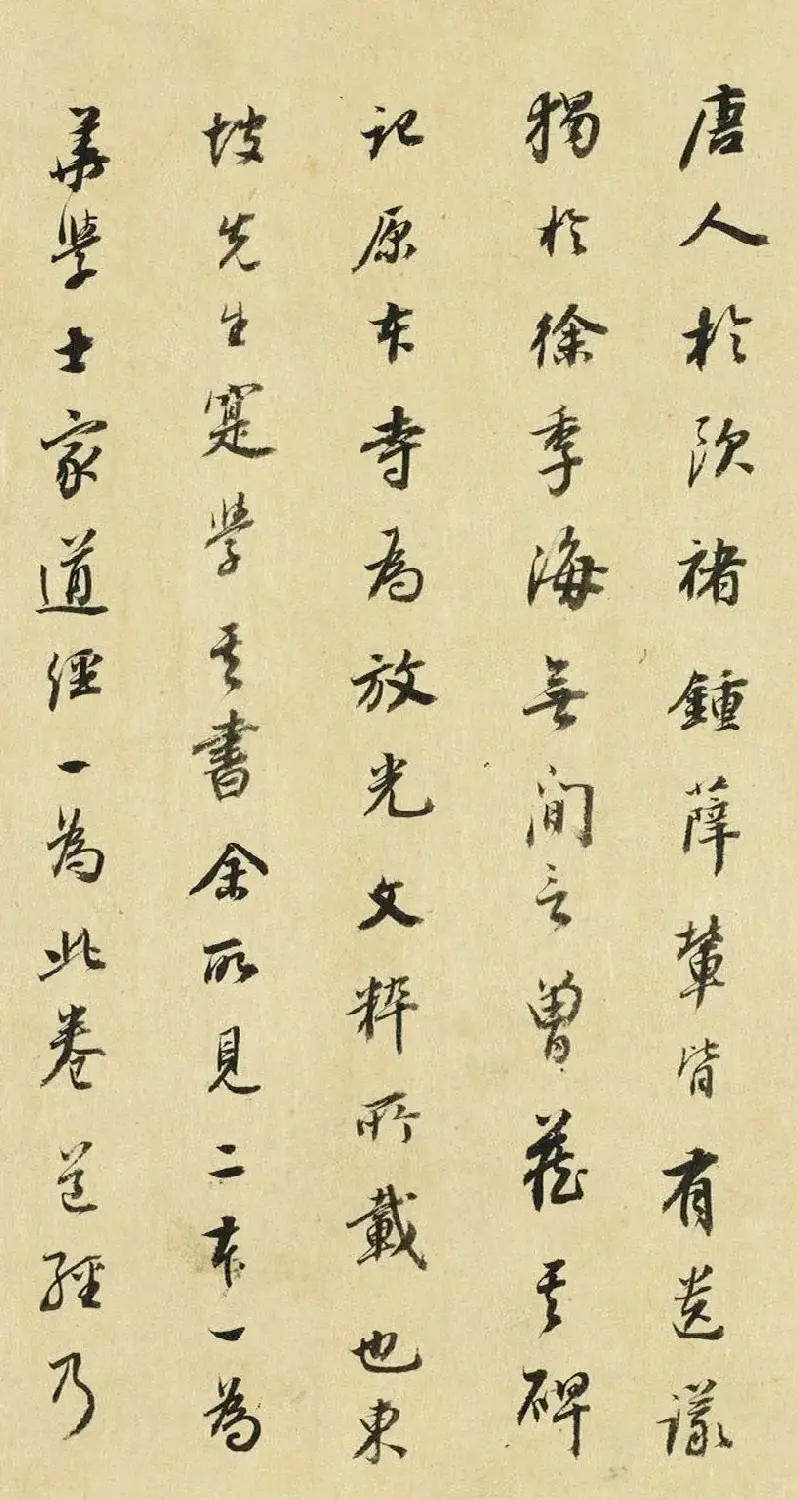 唐人於欧褚鍾薛輩皆有遗議
獨於徐季海無间言曾蔵其碑
記原本寺為放光文粹所載也東
坡先生寔學其書余所見二本一為
華學士家道經一為此卷道經乃